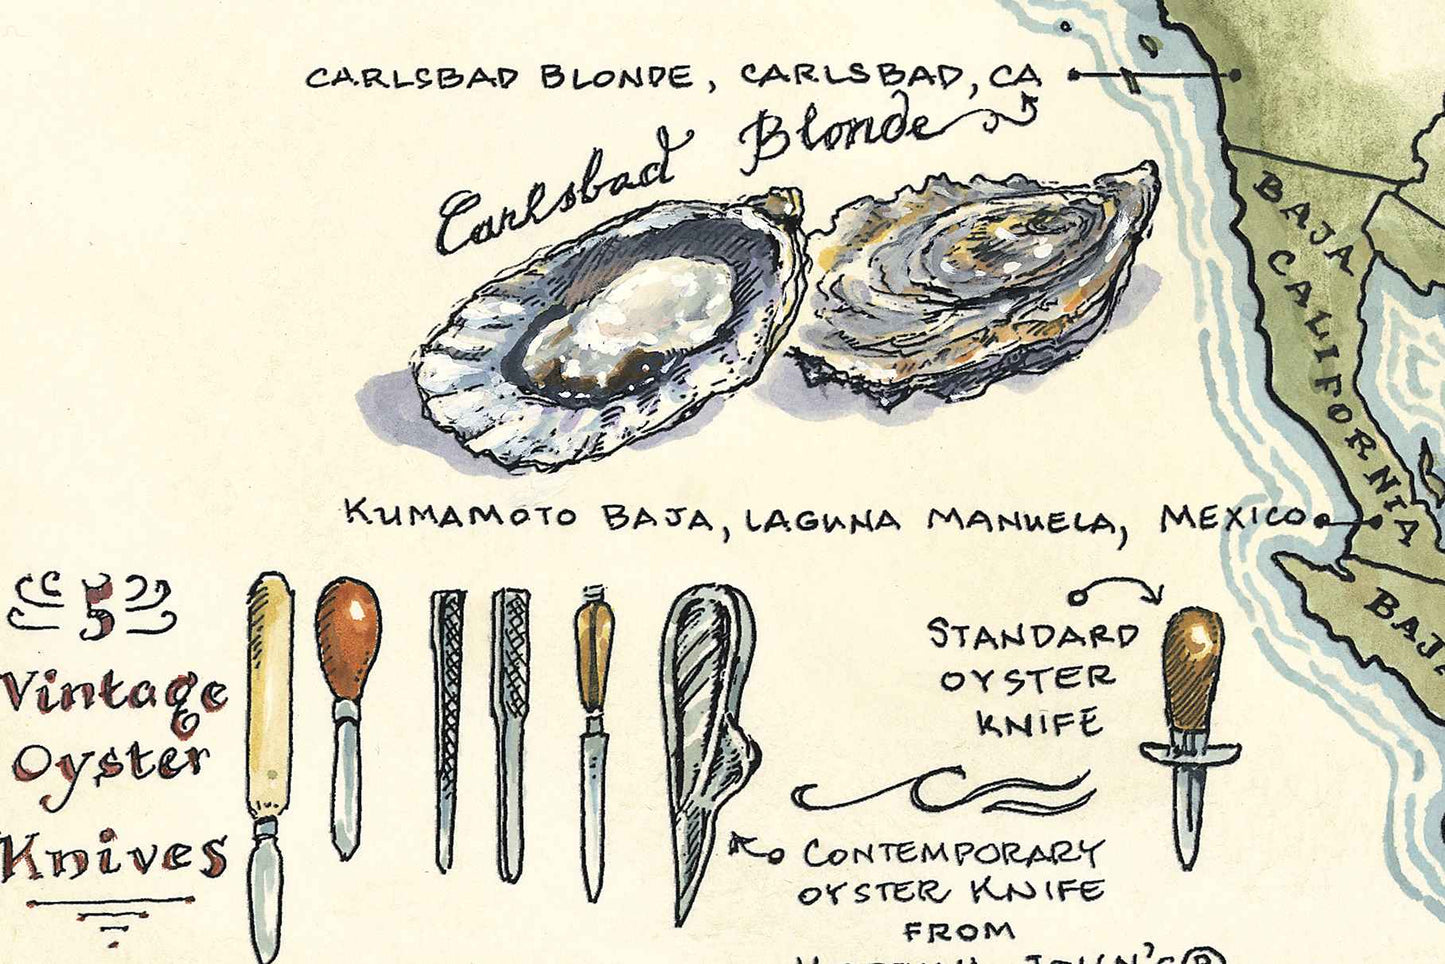 CARLSBAD BLONDE, CARLSBAD, CA
Carlsbad Blonde
BAJA CALIFORNIA
KUMAMOTO BAJA, LAGUNA MANUELA, MEXICO
5
Vintage
Oyster
Knives
STANDARD
OYSTER
KNIFE
CONTEMPORARY
OYSTER KNIFE
FROM